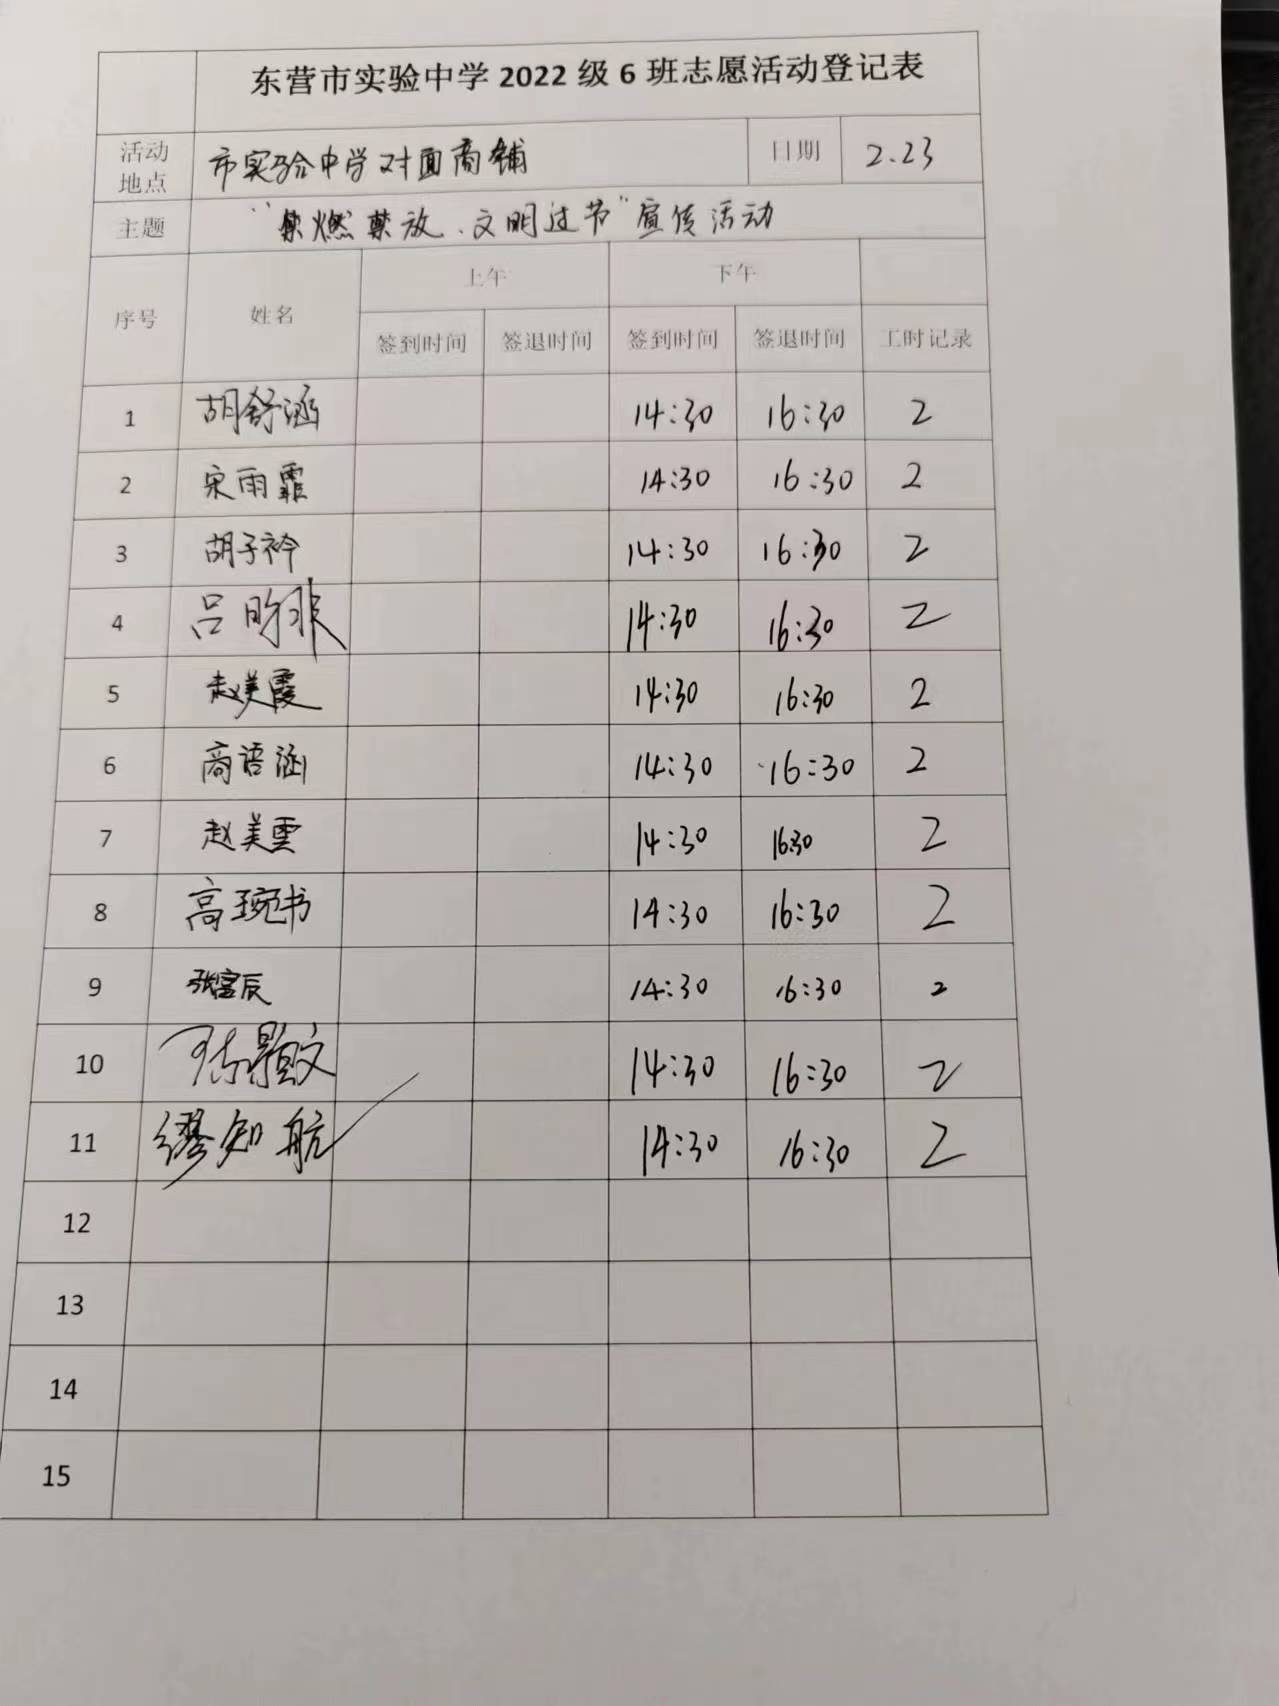 东营市实验中学 2022 级 6 班志愿活动登记表
活动地点 市实验中学对面商铺 日期 2.23
主题 “禁燃禁放、文明过节”宣传活动
序号 姓名 上午 下午
签到时间 签退时间 签到时间 签退时间 工时记录
1 胡舒涵 14:30 16:30 2
2 宋雨霏 14:30 16:30 2
3 胡子衿 14:30 16:30 2
4 吕昀非 14:30 16:30 2
5 赵美霞 14:30 16:30 2
6 商语涵 14:30 16:30 2
7 赵美雲 14:30 16:30 2
8 高琬书 14:30 16:30 2
9 张宸 14:30 16:30 2
10 14:30 16:30 2
11 缪知航 14:30 16:30 2
12
13
14
15